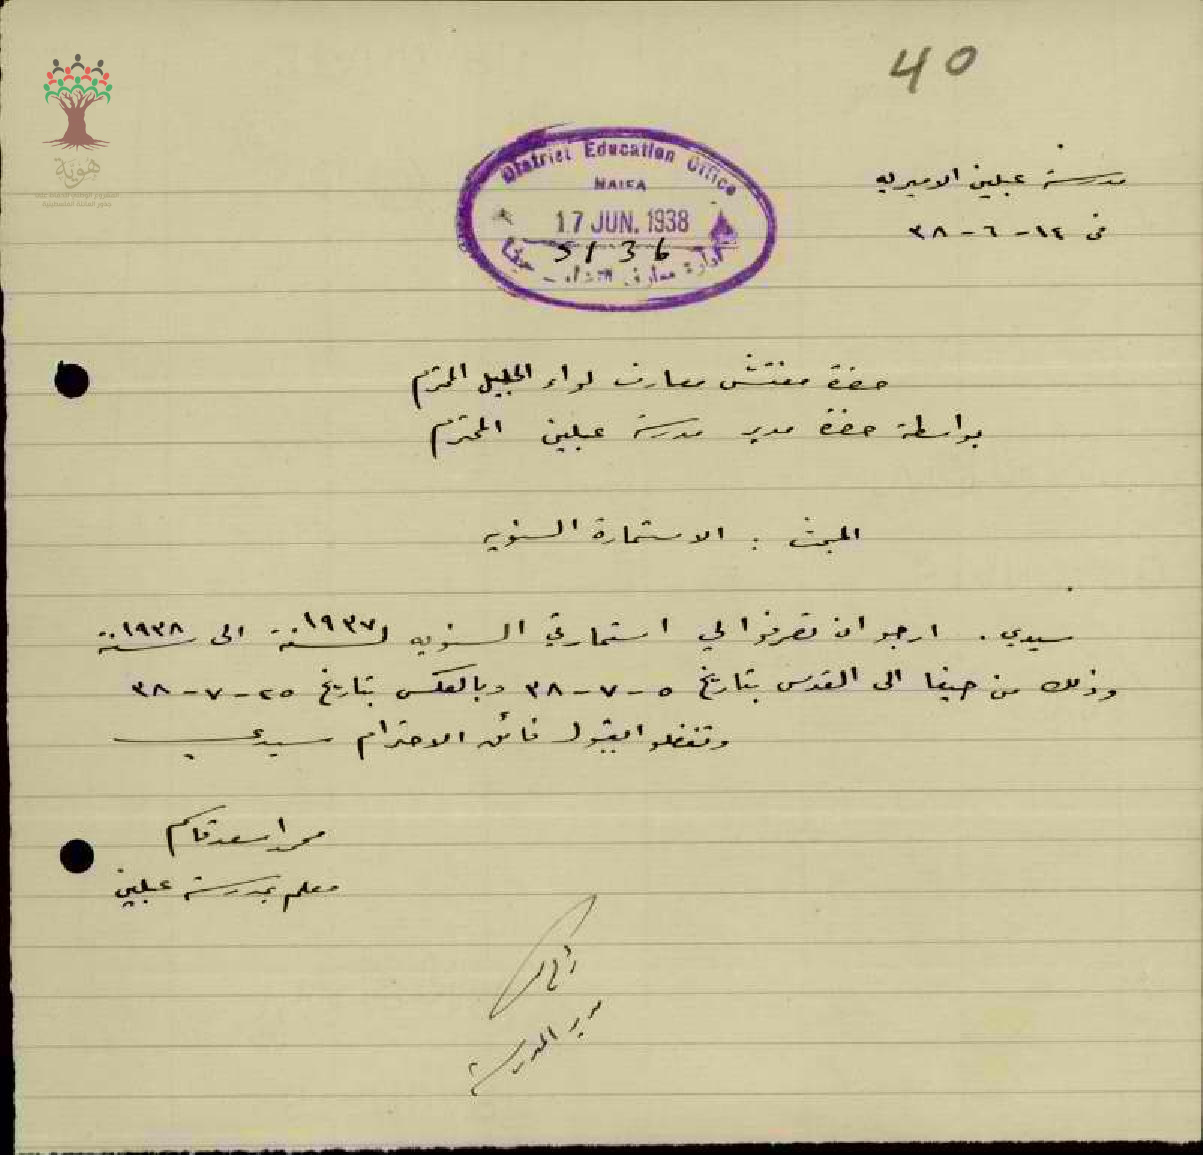 40
مدرسة عبلين الاميريه
في ١٤-٦-٣٨
District Education Office
HAIFA
17 JUN. 1938
5136
ادارة معارف اللواء - حيفا
هوية
حضرة مفتش معارف لواء الجليل المحترم
بواسطة حضرة مدير مدرسة عبلين المحترم
المبحث : الاستمارة السنويه
سيدي . ارجو ان تصرفوا لي استمارتي السنويه لسنة ١٩٣٧ الى سنة ١٩٣٨
وذلك من حيفا الى القدس بتاريخ ٥-٧-٣٨ وبالعكس بتاريخ ٢٥-٧-٣٨
وتفضلوا بقبول فائق الاحترام سيدي
محمد اسعد قاسم
معلم بمدرسة عبلين
مدير المدرسة